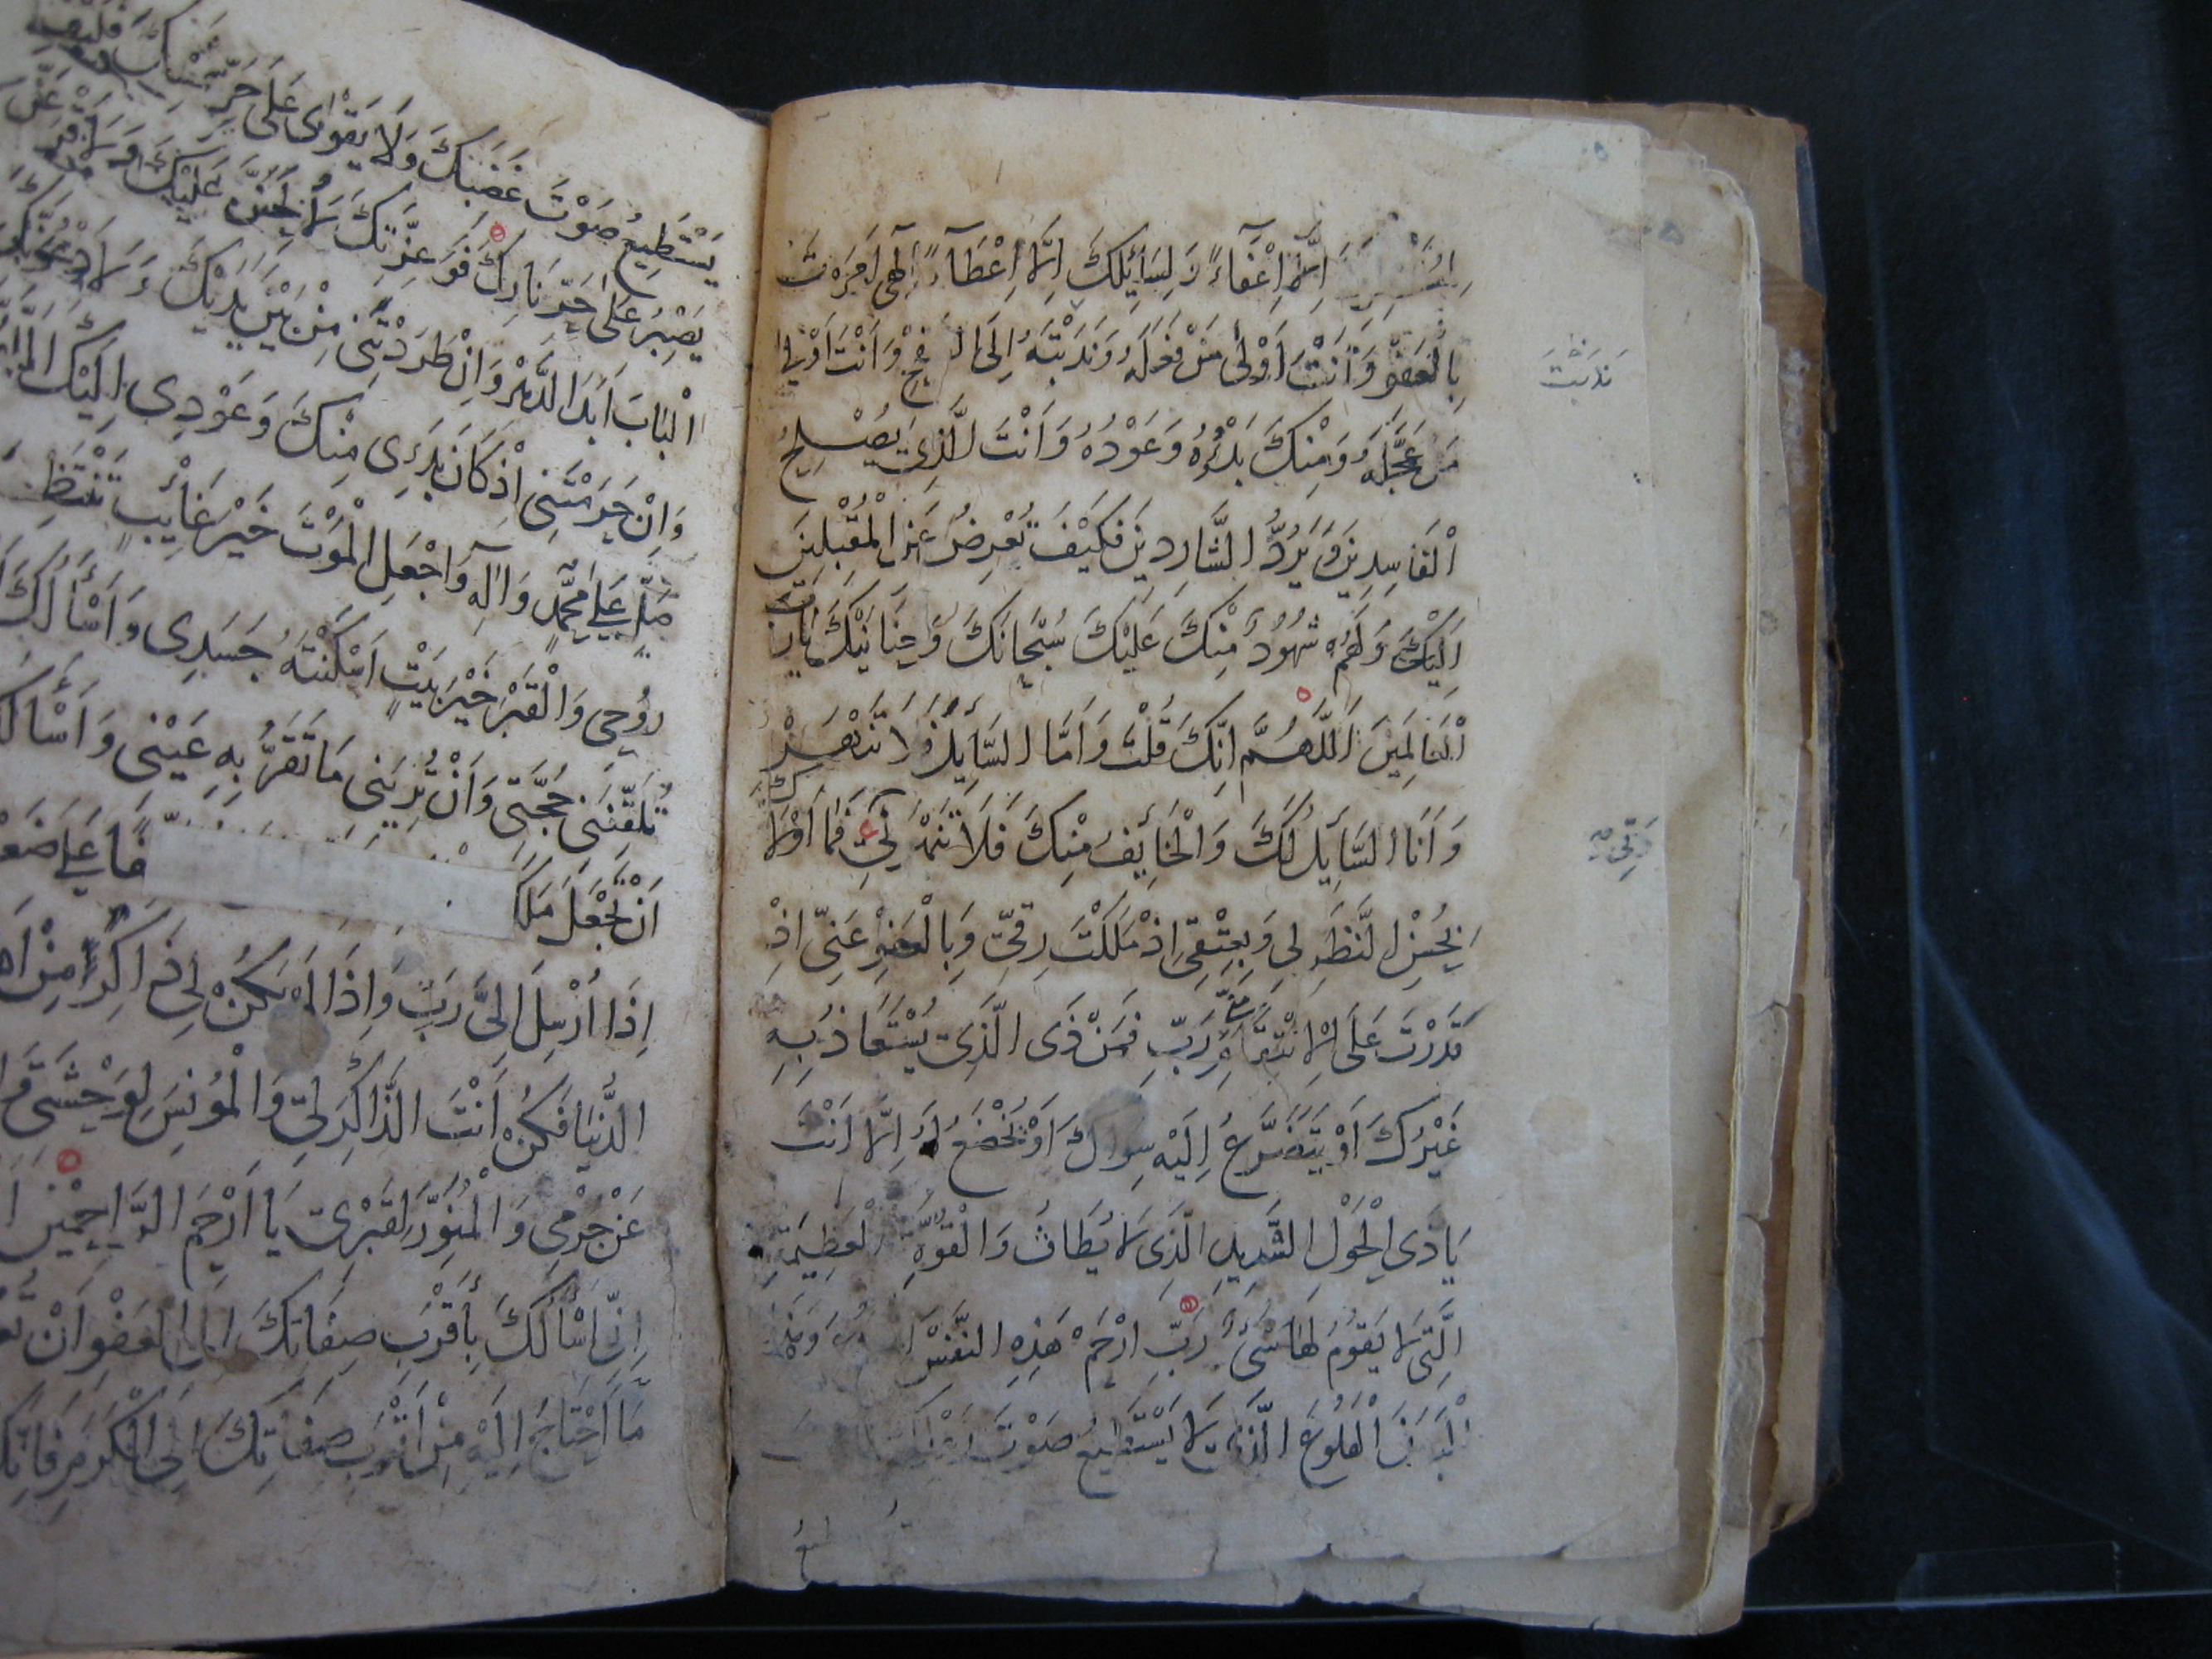 إِلَّا إِعْفَاءً وَلِسَائِلِكَ إِلَّا إِعْطَاءً إِلٰهِي أَمَرْتَ
بِالْعَفْوِ وَأَنْتَ أَوْلَى مَنْ فَعَلَهُ وَنَدَبْتَهُ إِلَى وَأَنْتَ أَوْلَى
مَنْ عَجَّلَهُ وَمِنْكَ بَدْؤُهُ وَعَوْدُهُ وَأَنْتَ الَّذِي يُصْلِحُ
الْفَاسِدِينَ وَيَرُدُّ الشَّارِدِينَ فَكَيْفَ تُعْرِضُ عَنِ الْمُقْبِلِينَ
إِلَيْكَ وَلَهُمْ شُهُودٌ مِنْكَ عَلَيْكَ سُبْحَانَكَ وَحَنَانَيْكَ يَا رَبَّ
الْعَالَمِينَ اَللَّهُمَّ إِنَّكَ قُلْتَ وَأَمَّا السَّائِلَ فَلَا تَنْهَرْ
وَأَنَا السَّائِلُ لَكَ وَالْخَائِفُ مِنْكَ فَلَا فَمَا أَوْلَاكَ
بِحُسْنِ النَّظَرِ لِي وَبِعِتْقِي إِذْ مَلَكْتَ رِقِّي وَبِالْعَفْوِ عَنِّي إِذْ
قَدَرْتَ عَلَى الْاِنْتِقَامِ مِنِّي رَبِّ فَمَنْ ذَى الَّذِي يُسْتَعَاذُ بِهِ
غَيْرُكَ أَوْ يَتَضَرَّعُ إِلَيْهِ سِوَاكَ أَوْ تُخْضَعُ لَهُ إِلَّا أَنْتَ
يَا ذَى الْحَوْلِ الشَّدِيدِ الَّذِي لَا يُطَاقُ وَالْقُوَّةِ الْعَظِيمَةِ
الَّتِي لَا يَقُومُ لَهَا شَيْءٌ رَبِّ ارْحَمْ هَذِهِ النَّفْسَ
الْهَلُوعَ الَّذِي لَا يَسْتَطِيعُ صَوْتَ
نَدَبْتَ
رِقِّي
يَسْتَطِيعُ صَوْتَ غَضَبِكَ وَلَا يَقْوَى عَلَى حَرِّ
يَصْبِرُ عَلَى حَرِّ نَارِكَ فَوَعِزَّتِكَ لَأُلِحَّنَّ عَلَيْكَ
الْبَابَ أَبَدَ الدَّهْرِ وَإِنْ طَرَدْتَنِي مِنْ بَيْنِ يَدَيْكَ
وَإِنْ حَرَمْتَنِي إِذْ كَانَ بَدَءِي مِنْكَ وَعَوْدِي إِلَيْكَ
صَلِّ عَلَى مُحَمَّدٍ وَآلِهِ وَاجْعَلِ الْمَوْتَ خَيْرَ غَائِبٍ تَنْتَظِ
رُوحِي وَالْقَبْرَ خَيْرَ بَيْتٍ أَسْكَنْتَهُ جَسَدِي وَأَسْأَلُكَ
تُلَقِّنَنِي حُجَّتِي وَأَنْ تُرِيَنِي مَا تَقَرُّ بِهِ عَيْنِي وَأَسْأَلُكَ
أَنْ تَجْعَلَ مَلَكًا
إِذَا أُرْسِلَ إِلَيَّ رَبِّ وَإِذَا لَمْ يَكُنْ لِي ذَاكِرًا مِنْ
الدُّنْيَا فَكُنْ أَنْتَ الذَّاكِرَ لِي وَالْمُونِسَ لِوَحْشَتِي
عَنْ جُرْمِي وَالْمُنَوِّرَ لِقَبْرِي يَا أَرْحَمَ الرَّاحِمِينَ
إِنِّي أَسْأَلُكَ بِأَقْرَبِ صِفَاتِكَ إِلَى الْعَفْوِ أَنْ
مَا أَحْتَاجُ إِلَيْهِ مِنْ أَقْرَبِ صِفَاتِكَ إِلَى الْكَرَمِ فَإِنَّكَ